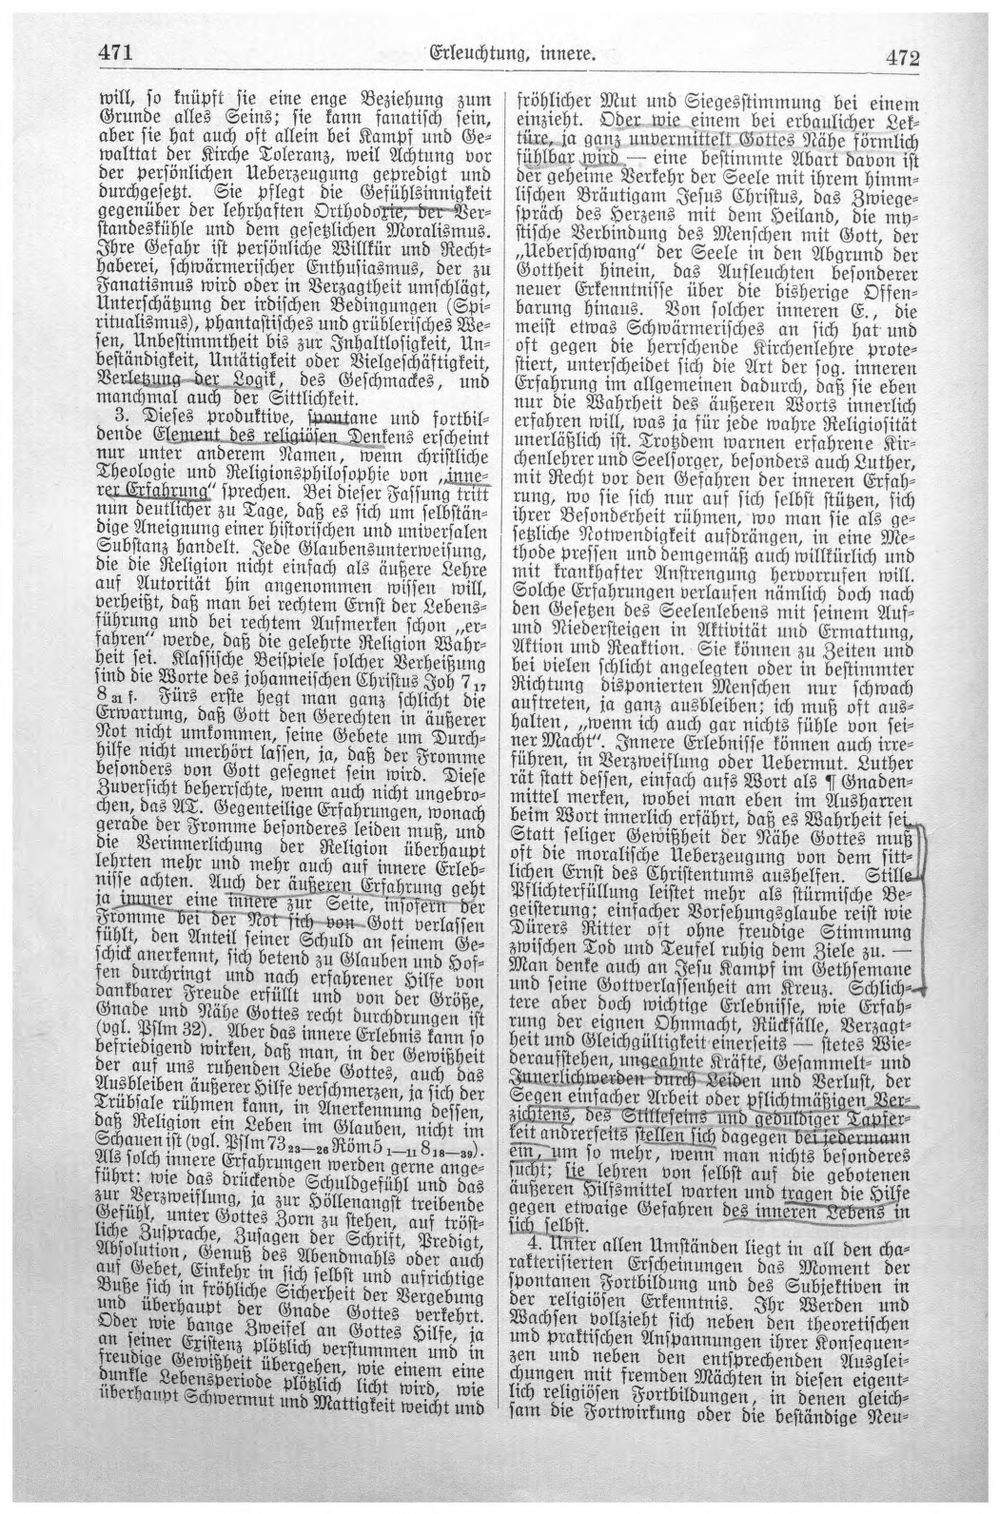 471
Erleuchtung, innere.
472
will, so knüpft sie eine enge Beziehung zum
Grunde alles Seins; sie kann fanatisch sein,
aber sie hat auch oft allein bei Kampf und Ge-
walttat der Kirche Toleranz, weil Achtung vor
der persönlichen Ueberzeugung gepredigt und
durchgesetzt. Sie pflegt die Gefühlsinnigkeit
gegenüber der lehrhaften Orthodoxie, der Ver-
standeskühle und dem gesetzlichen Moralismus.
Ihre Gefahr ist persönliche Willkür und Recht-
haberei, schwärmerischer Enthusiasmus, der zu
Fanatismus wird oder in Verzagtheit umschlägt,
Unterschätzung der irdischen Bedingungen (Spi-
ritualismus), phantastisches und grüblerisches We-
sen, Unbestimmtheit bis zur Inhaltlosigkeit, Un-
beständigkeit, Untätigkeit oder Vielgeschäftigkeit,
Verletzung der Logik, des Geschmackes, und
manchmal auch der Sittlichkeit.
3. Dieses produktive, spontane und fortbil-
dende Element des religiösen Denkens erscheint
nur unter anderem Namen, wenn christliche
Theologie und Religionsphilosophie von „inne-
rer Erfahrung“ sprechen. Bei dieser Fassung tritt
nun deutlicher zu Tage, daß es sich um selbstän-
dige Aneignung einer historischen und universalen
Substanz handelt. Jede Glaubensunterweisung,
die die Religion nicht einfach als äußere Lehre
auf Autorität hin angenommen wissen will,
verheißt, daß man bei rechtem Ernst der Lebens-
führung und bei rechtem Aufmerken schon „er-
fahren“ werde, daß die gelehrte Religion Wahr-
heit sei. Klassische Beispiele solcher Verheißung
sind die Worte des johanneischen Christus Joh 7 17
8 31 f. Fürs erste hegt man ganz schlicht die
Erwartung, daß Gott den Gerechten in äußerer
Not nicht umkommen, seine Gebete um Durch-
hilfe nicht unerhört lassen, ja, daß der Fromme
besonders von Gott gesegnet sein wird. Diese
Zuversicht beherrschte, wenn auch nicht ungebro-
chen, das AT. Gegenteilige Erfahrungen, wonach
gerade der Fromme besonderes leiden muß, und
die Verinnerlichung der Religion überhaupt
lehrten mehr und mehr auch auf innere Erleb-
nisse achten. Auch der äußeren Erfahrung geht
ja immer eine innere zur Seite, insofern der
Fromme bei der Not sich von Gott verlassen
fühlt, den Anteil seiner Schuld an seinem Ge-
schick anerkennt, sich betend zu Glauben und Hof-
fen durchringt und nach erfahrener Hilfe von
dankbarer Freude erfüllt und von der Größe,
Gnade und Nähe Gottes recht durchdrungen ist
(vgl. Pslm 32). Aber das innere Erlebnis kann so
befriedigend wirken, daß man, in der Gewißheit
der auf uns ruhenden Liebe Gottes, auch das
Ausbleiben äußerer Hilfe verschmerzen, ja sich der
Trübsale rühmen kann, in Anerkennung dessen,
daß Religion ein Leben im Glauben, nicht im
Schauen ist (vgl. Pslm 73 23—26 Röm 5 1—11 8 18—39).
Als solch innere Erfahrungen werden gerne ange-
führt: wie das drückende Schuldgefühl und das
zur Verzweiflung, ja zur Höllenangst treibende
Gefühl, unter Gottes Zorn zu stehen, auf tröst-
liche Zusprache, Zusagen der Schrift, Predigt,
Absolution, Genuß des Abendmahls oder auch
auf Gebet, Einkehr in sich selbst und aufrichtige
Buße sich in fröhliche Sicherheit der Vergebung
und überhaupt der Gnade Gottes verkehrt.
Oder wie bange Zweifel an Gottes Hilfe, ja
an seiner Existenz plötzlich verstummen und in
freudige Gewißheit übergehen, wie einem eine
dunkle Lebensperiode plötzlich licht wird, wie
überhaupt Schwermut und Mattigkeit weicht und
fröhlicher Mut und Siegesstimmung bei einem
einzieht. Oder wie einem bei erbaulicher Lek-
türe, ja ganz unvermittelt Gottes Nähe förmlich
fühlbar wird — eine bestimmte Abart davon ist
der geheime Verkehr der Seele mit ihrem himm-
lischen Bräutigam Jesus Christus, das Zwiege-
spräch des Herzens mit dem Heiland, die my-
stische Verbindung des Menschen mit Gott, der
„Ueberschwang“ der Seele in den Abgrund der
Gottheit hinein, das Aufleuchten besonderer
neuer Erkenntnisse über die bisherige Offen-
barung hinaus. Von solcher inneren E., die
meist etwas Schwärmerisches an sich hat und
oft gegen die herrschende Kirchenlehre prote-
stiert, unterscheidet sich die Art der sog. inneren
Erfahrung im allgemeinen dadurch, daß sie eben
nur die Wahrheit des äußeren Worts innerlich
erfahren will, was ja für jede wahre Religiosität
unerläßlich ist. Trotzdem warnen erfahrene Kir-
chenlehrer und Seelsorger, besonders auch Luther,
mit Recht vor den Gefahren der inneren Erfah-
rung, wo sie sich nur auf sich selbst stützen, sich
ihrer Besonderheit rühmen, wo man sie als ge-
setzliche Notwendigkeit aufdrängen, in eine Me-
thode pressen und demgemäß auch willkürlich und
mit krankhafter Anstrengung hervorrufen will.
Solche Erfahrungen verlaufen nämlich doch nach
den Gesetzen des Seelenlebens mit seinem Auf-
und Niedersteigen in Aktivität und Ermattung,
Aktion und Reaktion. Sie können zu Zeiten und
bei vielen schlicht angelegten oder in bestimmter
Richtung disponierten Menschen nur schwach
auftreten, ja ganz ausbleiben; ich muß oft aus-
halten, „wenn ich auch gar nichts fühle von sei-
ner Macht“. Innere Erlebnisse können auch irre-
führen, in Verzweiflung oder Uebermut. Luther
rät statt dessen, einfach aufs Wort als ¶ Gnaden-
mittel merken, wobei man eben im Ausharren
beim Wort innerlich erfährt, daß es Wahrheit sei.
Statt seliger Gewißheit der Nähe Gottes muß
oft die moralische Ueberzeugung von dem sitt-
lichen Ernst des Christentums aushelfen. Stille
Pflichterfüllung leistet mehr als stürmische Be-
geisterung; einfacher Vorsehungsglaube reist wie
Dürers Ritter oft ohne freudige Stimmung
zwischen Tod und Teufel ruhig dem Ziele zu. —
Man denke auch an Jesu Kampf im Gethsemane
und seine Gottverlassenheit am Kreuz. Schlich-
tere aber doch wichtige Erlebnisse, wie Erfah-
rung der eignen Ohnmacht, Rückfälle, Verzagt-
heit und Gleichgültigkeit einerseits — stetes Wie-
deraufstehen, ungeahnte Kräfte, Gesammelt- und
Innerlichwerden durch Leiden und Verlust, der
Segen einfacher Arbeit oder pflichtmäßigen Ver-
zichtens, des Stilleseins und geduldiger Tapfer-
keit andrerseits stellen sich dagegen bei jedermann
ein, um so mehr, wenn man nichts besonderes
sucht; sie lehren von selbst auf die gebotenen
äußeren Hilfsmittel warten und tragen die Hilfe
gegen etwaige Gefahren des inneren Lebens in
sich selbst.
4. Unter allen Umständen liegt in all den cha-
rakterisierten Erscheinungen das Moment der
spontanen Fortbildung und des Subjektiven in
der religiösen Erkenntnis. Ihr Werden und
Wachsen vollzieht sich neben den theoretischen
und praktischen Anspannungen ihrer Konsequen-
zen und neben den entsprechenden Ausglei-
chungen mit fremden Mächten in diesen eigent-
lich religiösen Fortbildungen, in denen gleich-
sam die Fortwirkung oder die beständige Neu-